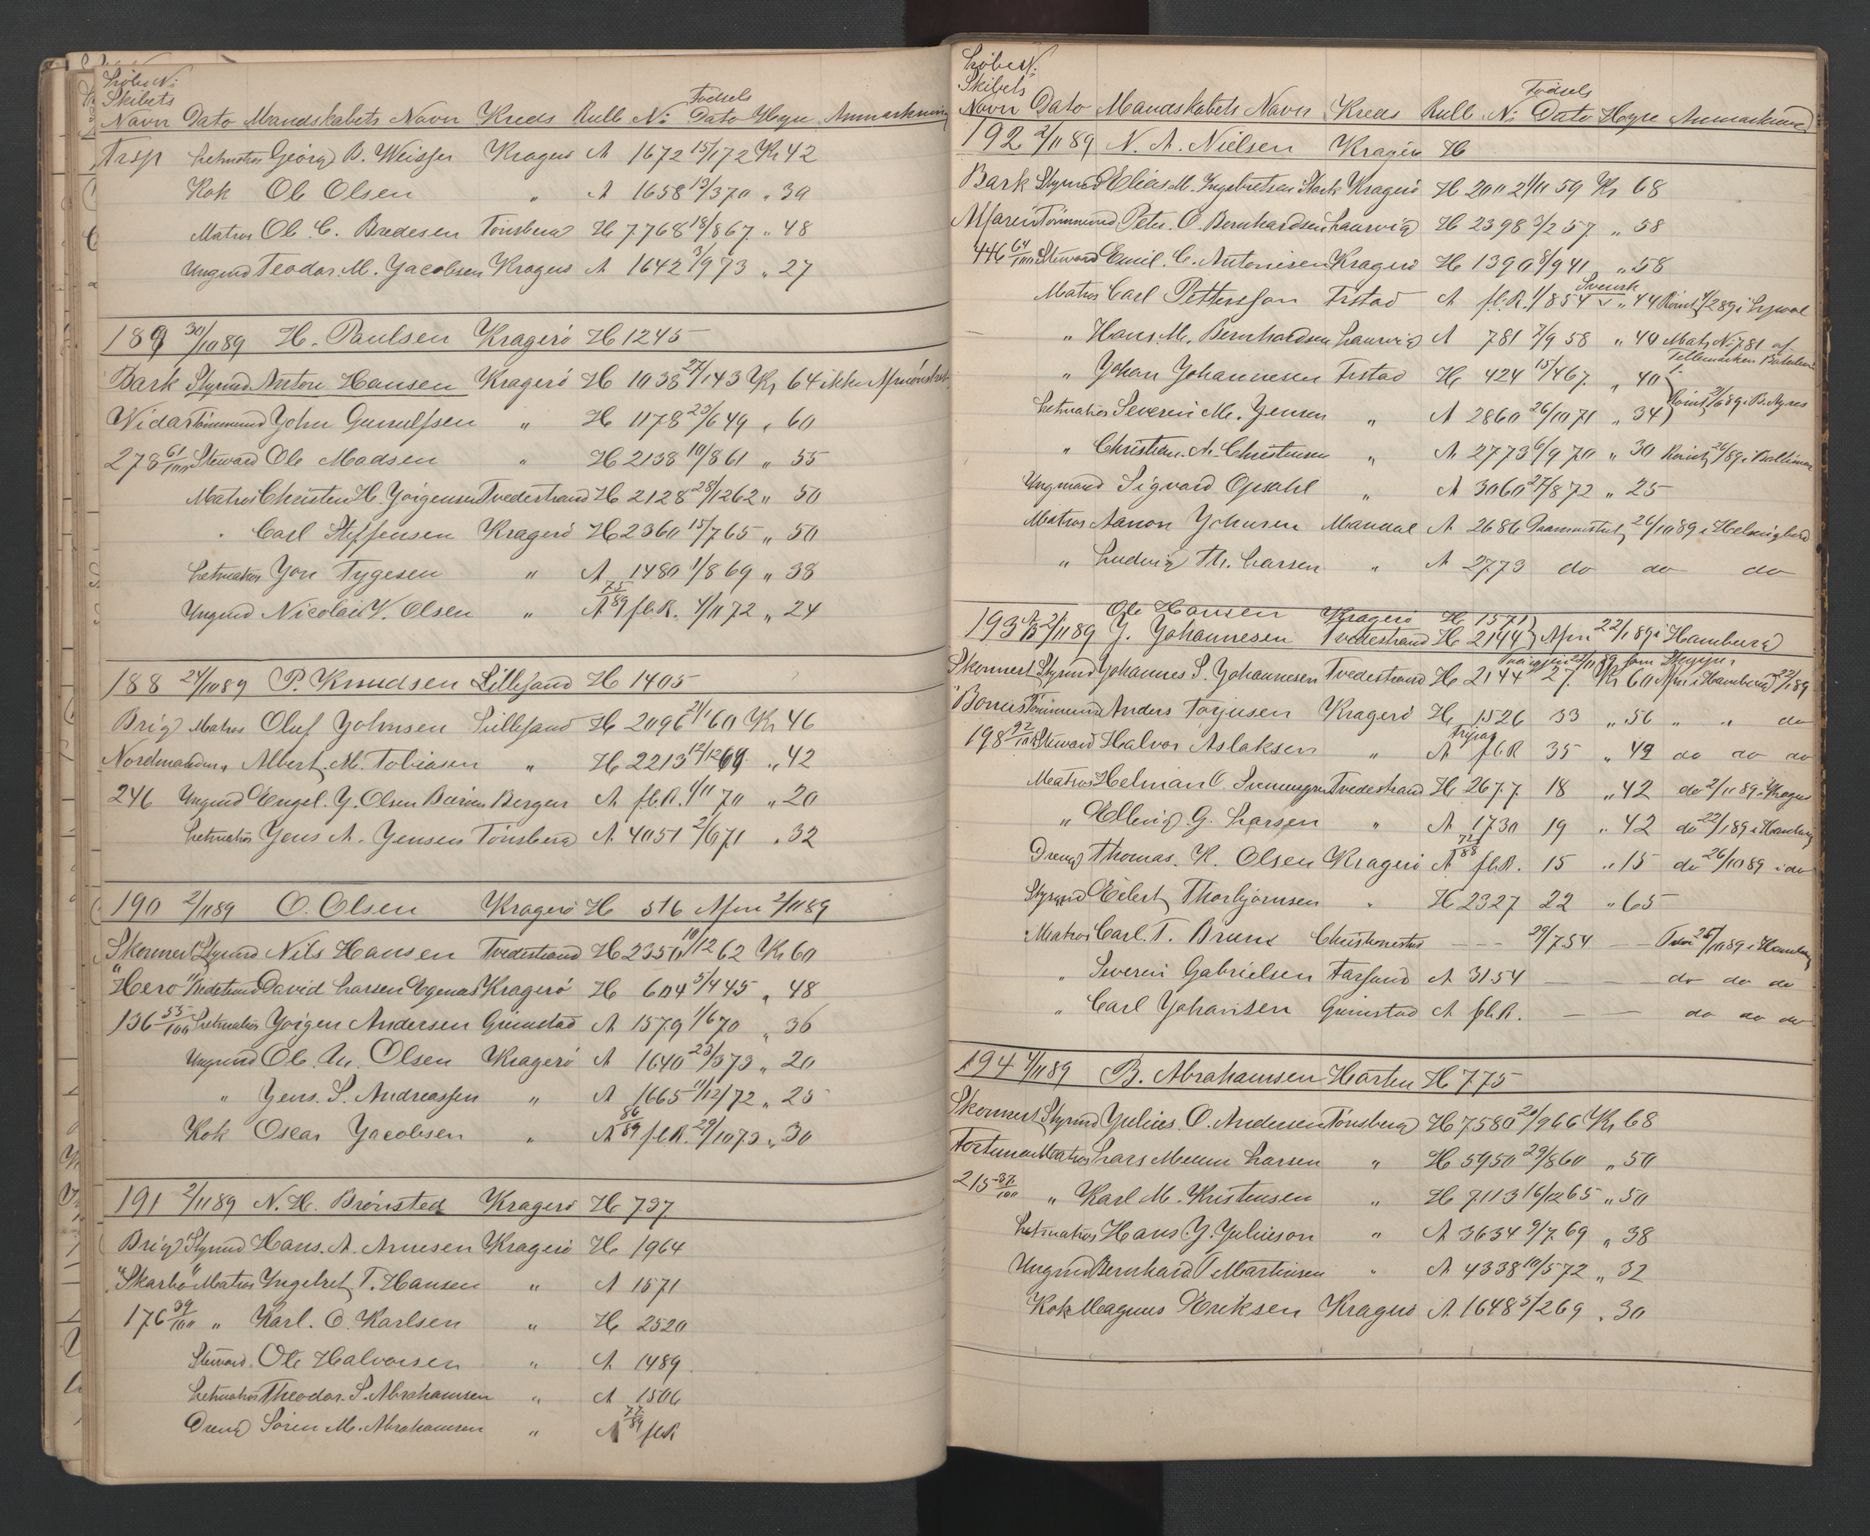 Løbe N:
Skibets Fødsels
Navn Dato Mandskabets Navn Kreds Rull N: Dato Hyre Anmærkning
Trsp Letmatros Georg B. Weisser Kragerø A 1672 15/1 72 Kr 42
Kok Ole Olsen " A 1658 13/3 70 " 39
Matros Ole C. Bredesen Tønsberg H 7768 18/8 67 " 48
Ungmd Teodor M. Jacobsen Kragerø A 1642 3/9 73 " 27
189 30/10 89 H. Paulsen Kragerø H 1245
Bark Styrmd Anton Hansen Kragerø H 1038 27/1 43 Kr 64 ikke Afmønstret
Widar Tømmermd John Gunulfsen " H 1178 23/6 49 " 60
278 61/100 Steward Ole Madsen " H 2138 10/8 61 " 55
Matros Christen H. Jørgensen Tvedestrand H 2128 28/12 62 " 50
" Carl Steffensen Kragerø H 2360 15/7 65 " 50
Letmatros Jon Tygesen " A 1480 1/8 69 " 38
Ungmd Nicolai V. Olsen " A 75/89 fl.R. 4/11 72 " 24
188 24/10 89 P. Knudsen Lillesand H 1405
Brig Matros Oluf Johnsen Lillesand H 2096 21/1 60 Kr 46
Nordmanden " Albert M. Tobiasen " H 2213 12/12 69 " 42
246 Ungmd Engel J. Olsen Bergen A fl.R. 4/11 70 " 20
Letmatros Jens A. Jensen Tønsberg A 4051 2/6 71 " 32
190 2/11 89 O. Olsen Kragerø H 516 Afm 2/11 89
Skonnert Styrmd Nils Hansen Tvedestrand H 2350 10/12 62 Kr 60
"Hero" Bedstmd David Larsen Kragerø H 604 5/4 45 " 48
136 55/100 Letmatros Jørgen Andersen Grimstad A 1579 1/6 70 " 36
Ungmd Ole An. Olsen Kragerø A 1640 23/3 73 " 20
" Jens S. Andreassen " A 1665 11/12 72 " 25
Kok Oscar Jacobsen " A 86/89 fl.R. 29/10 73 " 30
191 2/11 89 N. H. Brønsted Kragerø H 737
Brig Styrmd Hans A. Arnesen Kragerø H 1964
"Skarbo" Matros Ingebret T. Hansen " A 1571
176 39/100 " Karl O. Karlsen " H 2520
Steward Ole Halvorsen " A 1489
Letmatros Theodor S. Abrahamsen " A 1506
Dreng Søren M. Abrahamsen " A 77/89 fl.R
Løbe N:
Skibets Fødsels
Navn Dato Mandskabets Navn Kreds Rull N: Dato Hyre Anmærkning
192 2/11 89 N. A. Nielsen Kragerø H
Bark Styrmd Elias M. Ingebretsen Kragerø H 2001 21/11 59 Kr 68
Alfarin Tømmermd Peter O. Bernhardsen Laurvig H 2398 3/2 57 " 58
446 64/100 Steward Emil C. Antonisen Kragerø H 1390 8/9 41 " 58
Svensk
Matros Carl Pettersson Frstad A fl.R. 1/8 54 " 44
" Hans M. Bernhardsen Laurvig A 781 7/9 58 " 40 Mats N: 781 af
Tellemarken Bataljon
" Johan Johannesen Frstad H 424 15/4 67 " 40
Letmatros Severin M. Jensen " A 2860 26/10 71 " 34 Rømt 3/6 89 i B. Ayres
" Christian A. Christensen " A 2773 6/9 70 " 30 Rømt 26/ 89 i Baltimore
Ungmand Sigvard Opsahl " A 3060 27/8 72 " 25
Matros Aanon Johnsen Mandal A 2686 Paamønstret 26/10 89 i Helsingborg
" Ludvig Th. Larsen " A 2773 do do do
Ole Hansen Kragerø H 1571
193 A B 2/11 89 J. Johannesen Tvedestrand H 2144 Afm 22/1 89 i Hamburg
som Skipper
Skonnert Styrmd Johannes S. Johannesen Tvedestrand H 2144 27 Kr 60 Afm i Hamburg 22/1 89
"Bonus" Tømmermd Anders Torjusen Kragerø H 1526 33 " 56 " " do
198 92/100 Steward Halvor Aslaksen " A fl.R 35 " 42 do do do
Matros Helman O. Tvedestrand H 2677 18 " 42 do 2/11 89 i Kragerø
" Ellevig G. Larsen " A 1730 19 " 42 do 22/1 89 i Hamburg
Dreng Thomas K. Olsen Kragerø A 72/88 fl.R. 15 " 15 do 26/10 89 i do
Styrmd Eilert Thorbjørnsen " H 2327 22 " 65
Matros Carl T. Brunn Christiansted — — 29/7 54 — 26/10 89 i Hamburg
" Severin Gabrielsen Farsund A 3154 — — do do do
" Carl Johansen Grimstad A fl.R. — — do do do
194 4/11 89 B. Abrahamsen Horten H 775
Skonnert Styrmd Julius O. Andersen Tønsberg H 7580 20/9 66 Kr 68
Fortuna Matros Lars Mellum Larsen " H 5950 29/8 60 " 50
215 37/100 " Karl M. Kristensen " H 7113 16/12 65 " 50
Letmatros Hans J. Juliuson " A 3634 9/7 69 " 38
Ungmd Bernhard T. Martinsen " A 4338 10/5 72 " 32
Kok Magnus Eriksen Kragerø A 1648 5/2 69 " 30